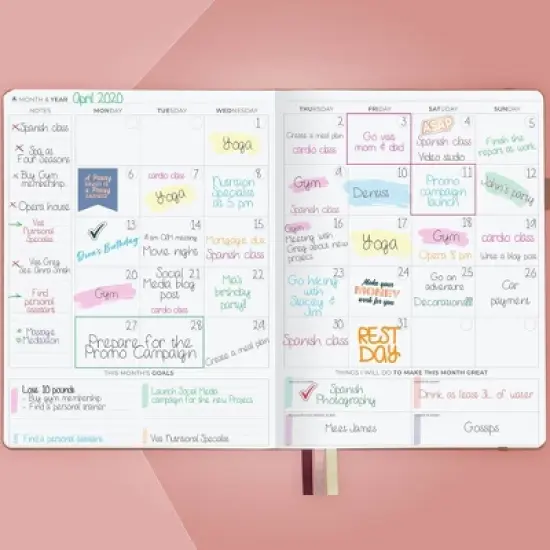 MONTH & YEAR April 2020
NOTES MONDAY TUESDAY WEDNESDAY THURSDAY FRIDAY SATURDAY SUNDAY
Spanish class
Spa at
Four Seasons
Buy Gym
membership
Opera house
Visit
Nutritional
Specialist
Find
personal
assistant
Massage
Mediation
1
Yoga
2
Create a meal plan
cardio class
3
Go visit
mom & dad
4
ASAP
Spanish class
Video studio
5
Finish the
report at work
6
7
cardio class
Yoga
8
Nutrition
Specialist
at 5 pm
9
Gym
Spanish class
10
Dentist
11
Promo
campaign
launch
12
John's party
13
Birthday
14
Movie night
15
Mortgage due
Spanish class
16
Gym
Meeting with
Greg about new
project
17
Yoga
18
Gym
Opera 8 pm
19
cardio class
Write a blog post
20
Gym
21
Social
Media blog
post
cardio class
22
Mia's
birthday
party!
23
Go hiking
with
24
Make your
MONEY
work for you
25
Go on an
adventure
26
Car
payment
27
28
Prepare for the
Promo Campaign
29
Create a meal plan
30
Spanish class
31
REST
DAY
THIS MONTH'S GOALS
Lose 10 pounds
- Buy gym membership
- Find a personal trainer
Launch Social Media
campaign for the new Project
Find a personal assistant
Visit Nutritional Specialist
THINGS I WILL DO TO MAKE THIS MONTH GREAT
Spanish
Photography
Drink at least 3L of water
Meet James
Gossips